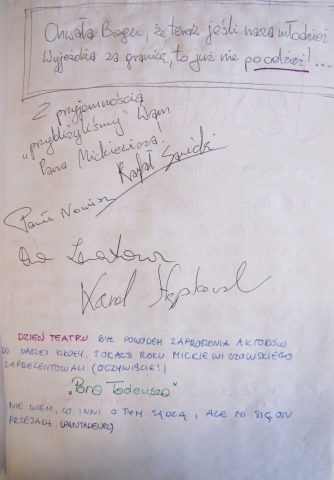 Chwała Bogu, że teraz jeśli nasza młodzież
wyjeżdża za granicę, to już nie po odzież!...
Z przyjemnością
"przybliżyliśmy" Wam
Pana Mickiewicza!
Rafał Sawicki
Paweł
Karol
DZIEŃ TEATRU BYŁ POWODEM ZAPROSZENIA AKTORÓW
DO NASZEJ SZKOŁY. Z OKAZJI ROKU MICKIEWICZOWSKIEGO
ZAPREZENTOWALI (OCZYWIŚCIE!)
"Pana Tadeusza"
NIE WIEM, CO INNI O TYM SĄDZĄ, ALE MI SIĘ ON
PRZEJADŁ. (PANTADEUSZ)